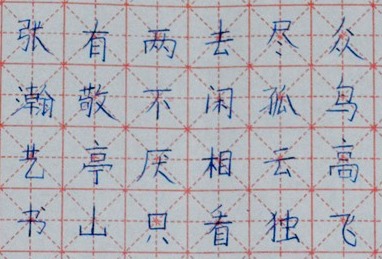 众鸟高飞
尽孤云独
去闲相看
两不厌只
有敬亭山
张瀚艺书